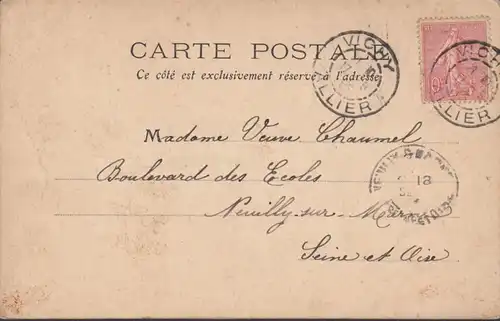 CARTE POSTALE
Ce côté est exclusivement réservé à l'adresse
VICHY
ALLIER
VICHY
ALLIER
Madame Veuve Chaumel
Boulevard des Ecoles
18
Neuilly-sur-Marne
Seine et Oise